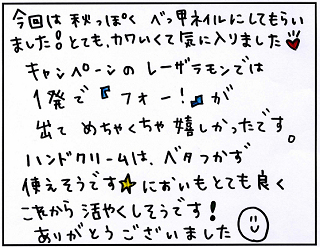 今回は 秋っぽく べっ甲ネイルにしてもらい
ました!とても、カワいくて気に入りました
キャンペーンの レーザラモンでは
1発で『フォー!』が
出て めちゃくちゃ 嬉しかったです。
ハンドクリームは、ベタつかず
使えそうです☆においもとても良く
これから 活やくしそうです!
ありがとう ございました